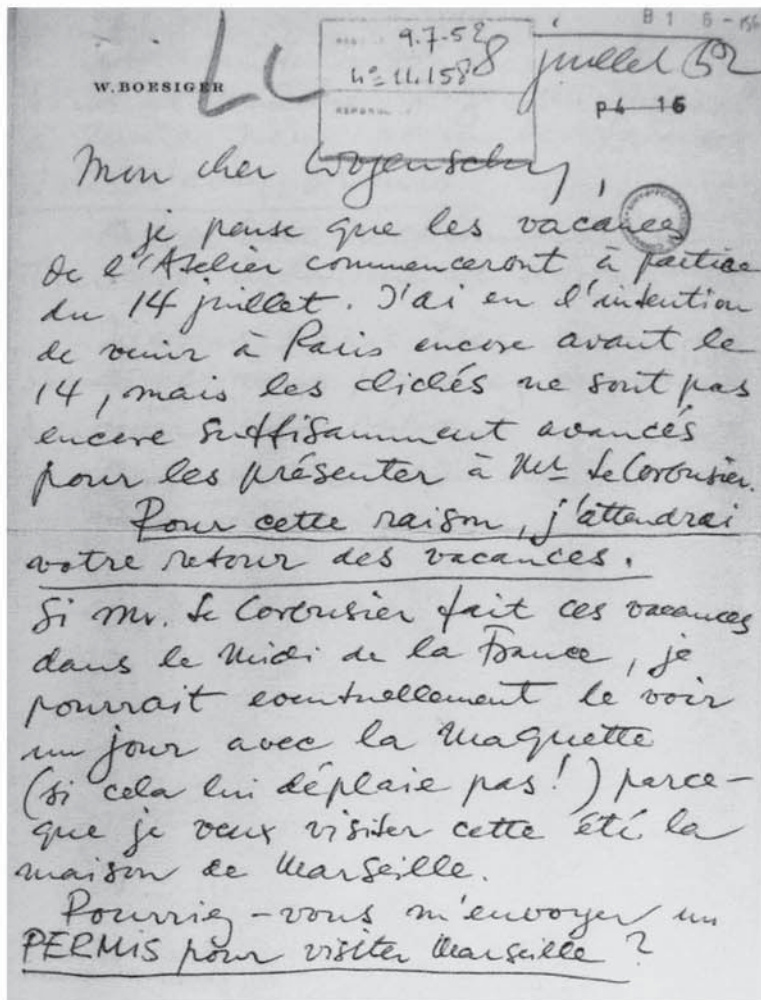 B1 6-
9.7.52
W. BOESIGER
LC
n° 11.158
8 juillet 52
P4 16
Mon cher Wogenscky,
je pense que les vacances
de l'Atelier commenceront à partire
du 14 juillet. J'ai eu l'intention
de venir à Paris encore avant le
14, mais les clichés ne sont pas
encore suffisamment avancés
pour les présenter à Mr Le Corbusier.
Pour cette raison, j'attendrai
votre retour des vacances.
Si Mr. Le Corbusier fait ces vacances
dans le Midi de la France, je
pourrait eventuellement le voir
un jour avec la Maquette
(si cela lui déplaie pas!) parce-
que je veux visiter cette été la
maison de Marseille.
Pourriez-vous m'envoyer un
PERMIS pour visiter Marseille ?